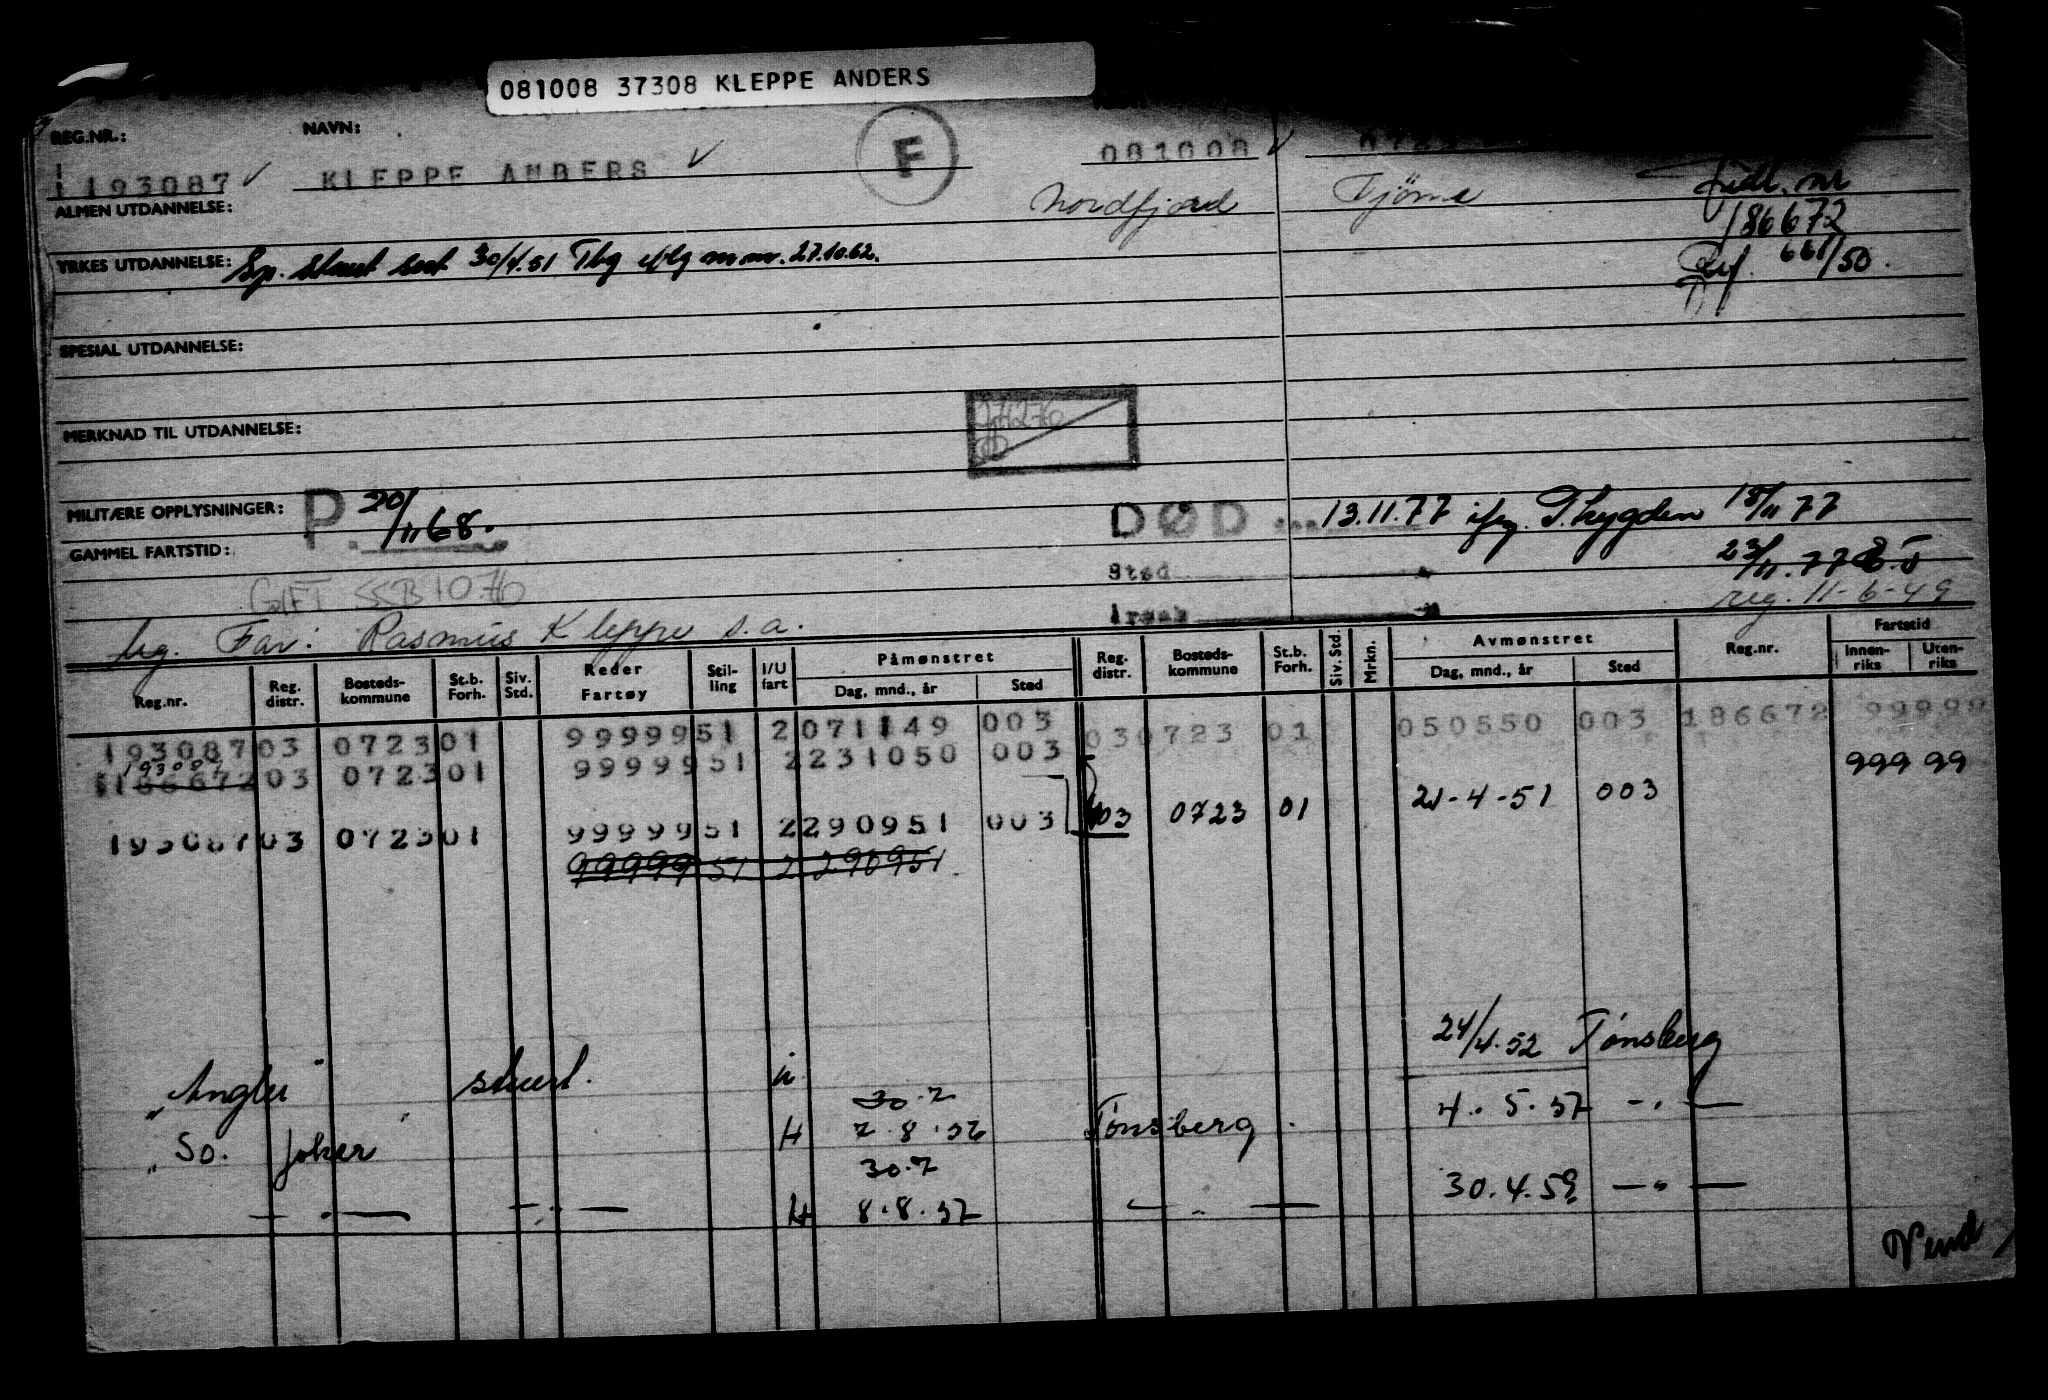 081008 37308 KLEPPE ANDERS
REG.NR.: NAVN:
193087 KLEPPE ANDERS F 081008
ALMEN UTDANNELSE: Nordfjord Tjøme tidl. nr
186672
YRKES UTDANNELSE: 30/4.51 Tbg 27.10.62. 661/50.
SPESIAL UTDANNELSE:
MERKNAD TIL UTDANNELSE:
MILITÆRE OPPLYSNINGER: P. 20/11 68. DØD 13.11.77 T.trygden 15/11 77
GAMMEL FARTSTID: Sted 23/11.77
GIFT SSB 1076 Årsak reg. 11-6-49
Far: Rasmus Kleppe s.a.
Reg.nr. Reg. distr. Bosteds-kommune St.b. Forh. Siv. Std. Reder Fartøy Stil-ling I/U fart Påmønstret Dag, mnd., år Sted Reg. distr. Bosteds-kommune St.b. Forh. Siv. Std. Mrkn. Avmønstret Dag, mnd., år Sted Reg.nr. Fartstid Innen-riks Uten-riks
193087 03 0723 01 99999 51 2 071149 003 03 0723 01 050550 003 186672 99999
193087
186672 03 0723 01 99999 51 2 231050 003
03 0723 01 21-4-51 003 999 99
193087 03 0723 01 99999 51 2 290951 003
99999 51 2 290951
24/4.52 Tønsberg
"Angler" stuert. u
30.7
"So. Joker H 7.8.52 Tønsberg. 4.5.52 -"-
30.7
-"- -"- H 8.8.52 -"- 30.4.59 -"-
Vend